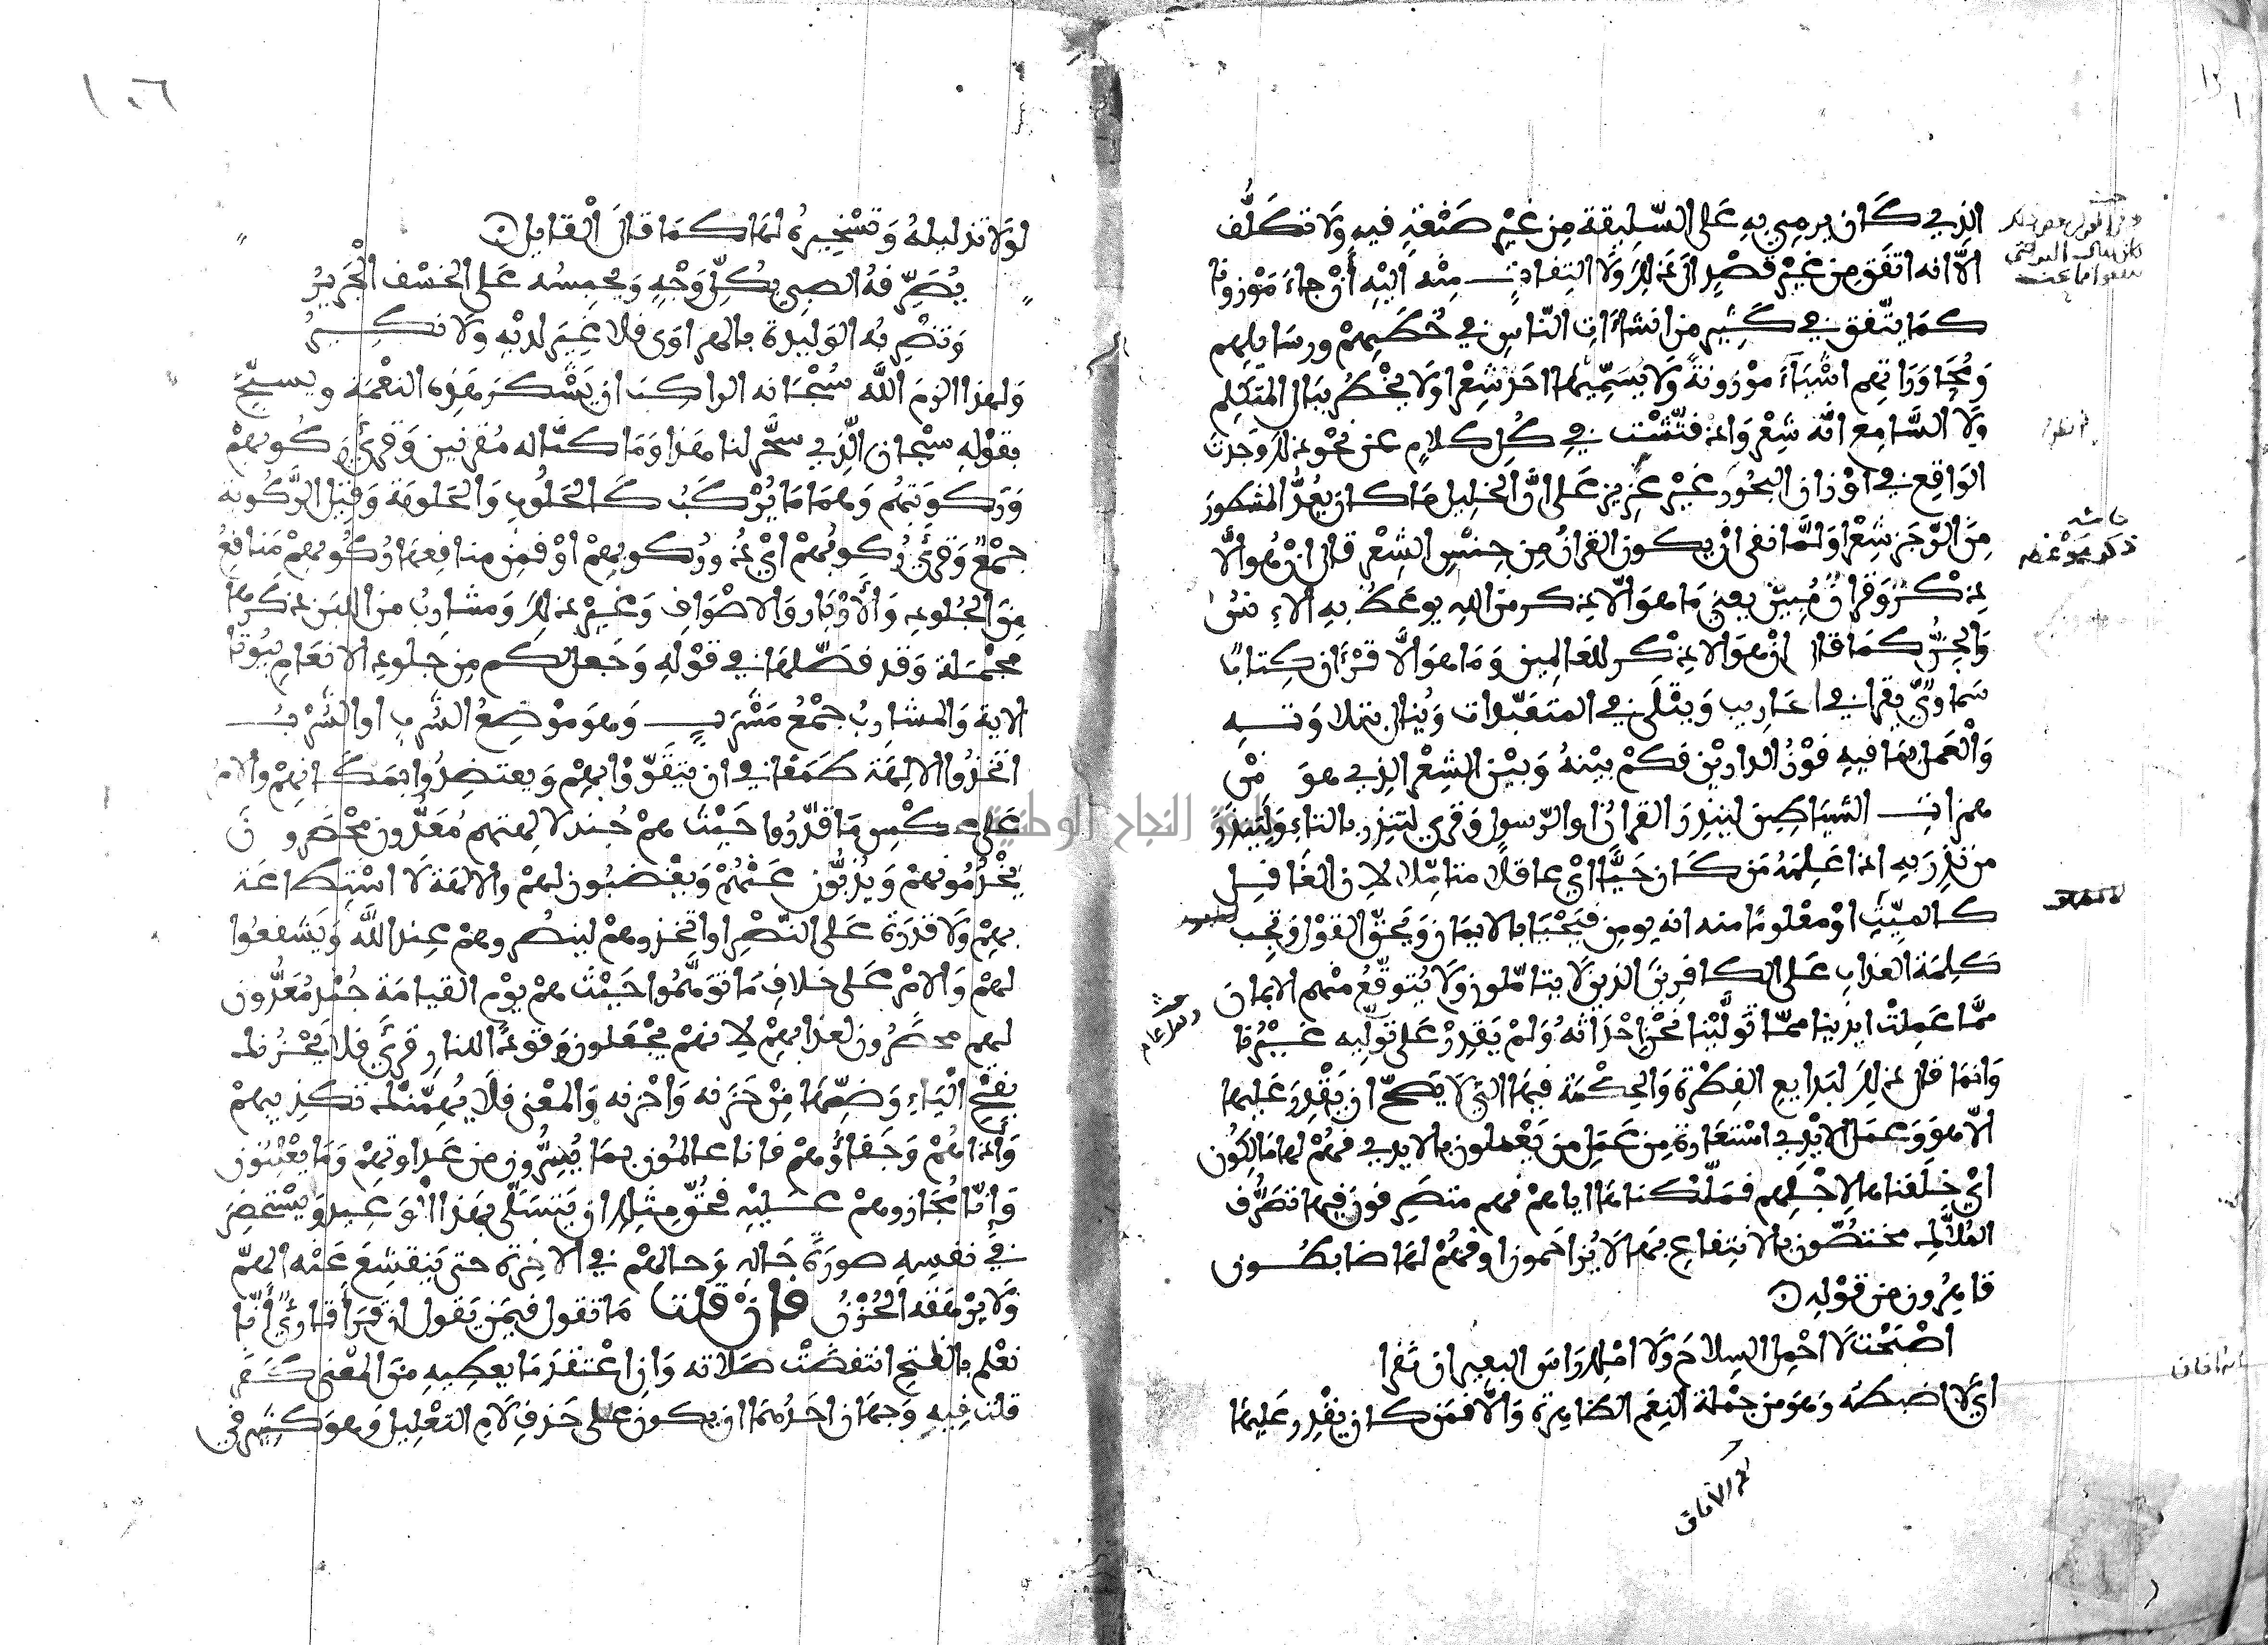 الذي كان يرمي به على السليقة من غير صنعة فيه ولا تكلف
الا انه اتفق من غير قصد الى ذلك ولا التفات منه اليه أن جاء موزونا
كما يتفق في كثير من انشاءات الناس في خطبهم ورسايلهم
ومحاوراتهم اشياء موزونة ولا يسميها احد شعرا ولا يخطر ببال المتكلم
ولا السامع انه شعر واذا فتشت في كل كلام عن نحو ذلك وجدت
الواقع في اوزان البحور غير عزيز على ان الخليل ما كان يعد المشطور
من الرجز شعرا ولما نفى ان يكون القران من جنس الشعر قال ان هو الا
ذكر وقران مبين يعني ما هو الا ذكر من الله يوعظ به الانس
والجن كما قال ان هو الا ذكر للعالمين وما هو الا قرءان كتاب
سماوي يقرا في المحاريب ويتلى في المتعبدات وينال بتلاوته
والعمل بما فيه فوز الدارين فكم بينه وبين الشعر الذي هو من
همزات الشياطين لينذر القران او الرسول وقري لتنذر بالتاء ولينذر
من نذر به اذا علمه من كان حيا اي عاقلا متاملا لان الغافل
كالميت او معلوما منه انه يومن فيحيا بالايمان ويحق القول وتجب
كلمة العذاب على الكافرين الذين لا يتاملون ولا يتوقع منهم الايمان
مما عملت ايدينا مما تولينا نحن احداثه ولم يقدر على توليه غيرنا
وانما قال ذلك لبدايع الفطرة والحكمة فيها التي لا يصح ان يقدر عليها
الا هو وعمل الايدي استعارة من عمل من يعملون بالايدي فهم لها مالكون
اي خلقناها لاجلهم فملكناها اياهم فهم متصرفون فيها تصرف
الملاك مختصون بالانتفاع بها لا يزاحمون او فهم لها ضابطون
قاهرون من قوله
اصبحت لا احمل السلاح ولا املك راس البعير ان نفرا
اي لا اضبطه وهو من جملة النعم الظاهرة والا فمن كان يقدر عليها
لولا تذليله وتسخيره لها كما قال القايل
يصرفه الصبي بكل وجه ويحبسه على الخسف الجرير
وتضربه الوليدة بالهراوى فلا غير لديه ولا نكير
ولهذا الزم الله سبحانه الراكب ان يشكر هذه النعمة ويسبح
بقوله سبحان الذي سخر لنا هذا وما كنا له مقرنين وقرئ ركوبهم
وركوبتهم وهما ما يركب كالحلوب والحلوبة وقيل الركوبة
جمع وقرئ ركوبهم اي ذو ركوبهم او فمن منافعها ركوبهم منافع
من الجلود والاوبار والاصواف وغير ذلك ومشارب من اللبن ذكرها
مجملة وقد فصلها في قوله وجعل لكم من جلود الانعام بيوتا
الاية والمشارب جمع مشرب وهو موضع الشرب او الشرب
اتخذوا الالهة طمعا في ان يتقووا بهم ويعتضدوا بمكانهم والامر
على عكس ما قدروا حيث هم جند لالهتهم معدون محضرون
يخدمونهم ويذبون عنهم ويغضبون لهم والالهة لا استطاعة
بهم ولا قدرة على النصر او اتخذوهم لينصروهم عند الله ويشفعوا
لهم والامر على خلاف ما توهموا حيث هم يوم القيامة جند معدون
لهم محضرون لعذابهم لانهم يجعلون وقودا للنار قرئ فلا يحزنك
بفتح الياء وضمها من حزنه واحزنه والمعنى فلا يهمنك تكذيبهم
واذاهم وجفاؤهم فانا عالمون بما يسرون من عداوتهم وما يعلنون
وانا مجازوهم عليه فحق مثلك ان يتسلى بهذا الوعيد ويستحضر
في نفسه صورة حاله وحالهم في الاخرة حتى ينقشع عنه الهم
ولا يرهقه الحزن فان قلت ما تقول فيمن يقول ان قرأ قارئ أنا
نعلم بالفتح انتقضت صلاته وان اعتقد ما يعطيه من المعنى كفر
قلت فيه وجهان احدهما ان يكون على حذف لام التعليل وهو كثير في
١٠٦
جامعة النجاح الوطنية